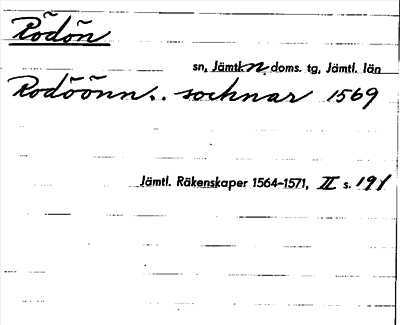 Rödön
sn, Jämtl. n. doms. tg, Jämtl. län
Rodöönn.. sochnar 1569
Jämtl. Räkenskaper 1564-1571, II s. 191